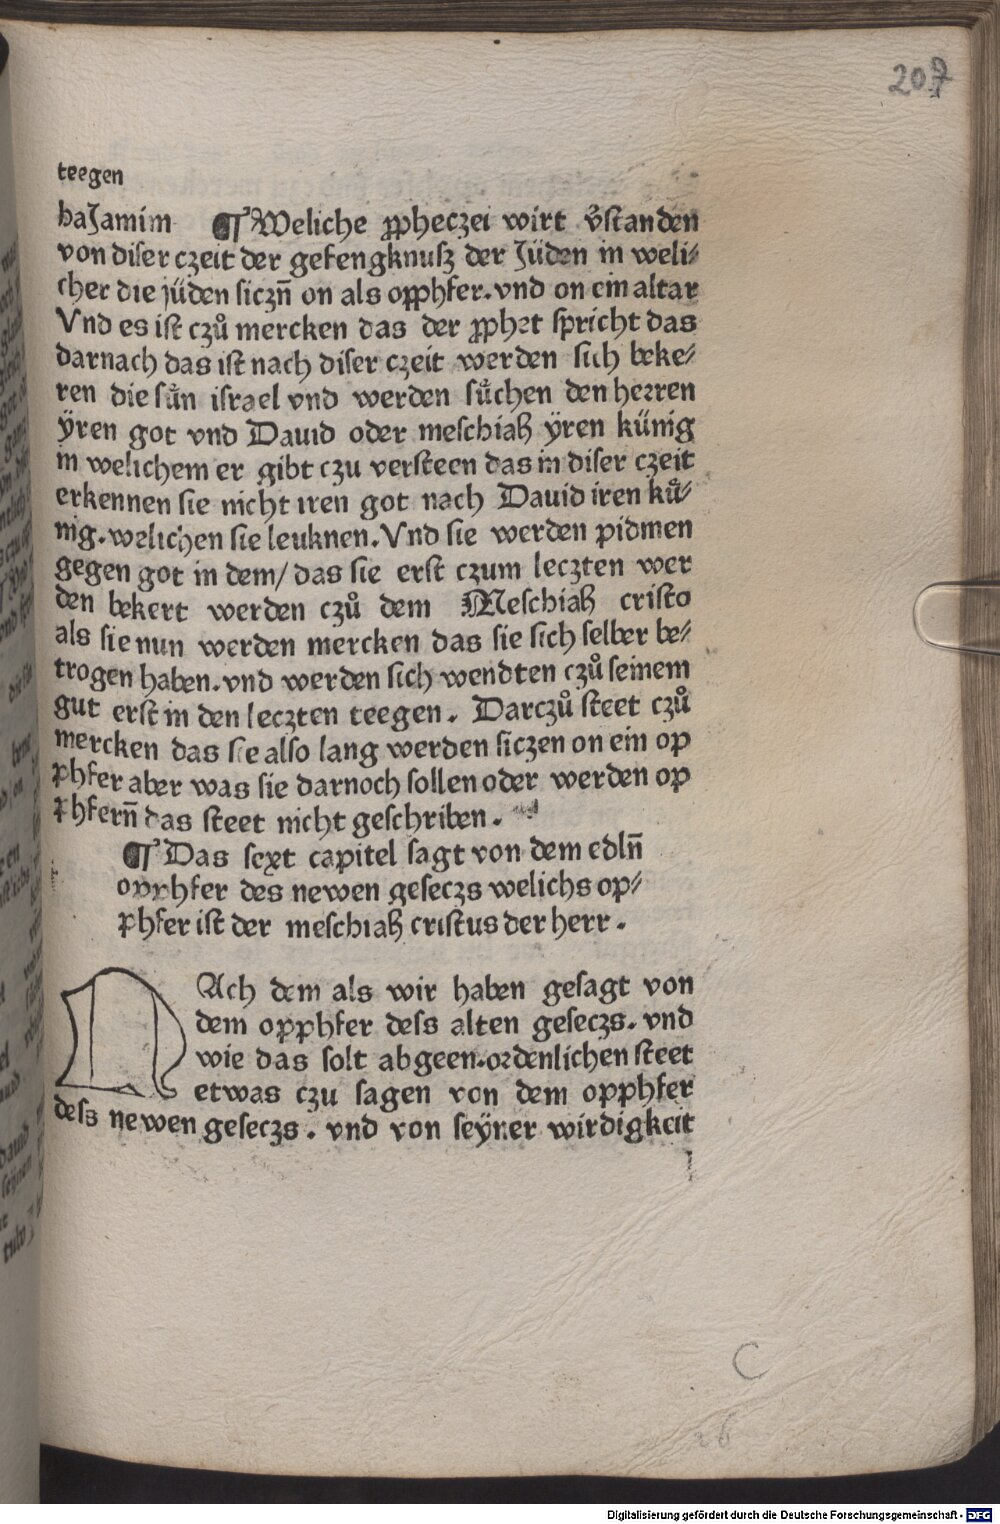 207
teegen
haJamim ¶ Weliche ꝓpheczei wirt v̉standen
von diser czeit der gefengknusz der Jüden in weli⸗
cher die jüden siczn̄ on als opphfer. vnd on ein altar
Vnd es ist czů mercken das der ꝓphet spricht das
darnach das ist nach diser czeit werden sich beke⸗
ren die sün israel vnd werden sůchen den herren
ÿren got vnd Dauid oder meschiaß ÿren künig
in welichem er gibt czu versteen das in diser czeit
erkennen sie nicht iren got nach Dauid iren kü⸗
nig. welichen sie leuknen. Vnd sie werden pidmen
gegen got in dem/ das sie erst czum leczten wer
den bekert werden czů dem Meschiaß cristo
als sie nun werden mercken das sie sich selber be⸗
trogen haben. vnd werden sich wendten czů seinem
gut erst in den leczten teegen. Darczů steet czů
mercken das sie also lang werden siczen on ein op
phfer aber was sie darnoch sollen oder werden op
phfern̄ das steet nicht geschriben.
¶ Das sext capitel sagt von dem edln̄
opphfer des newen geseczs welichs op⸗
phfer ist der meschiaß cristus der herr.
NAch dem als wir haben gesagt von
dem opphfer dess alten geseczs. vnd
wie das solt abgeen. ordenlichen steet
etwas czu sagen von dem opphfer
dess newen geseczs. vnd von seÿner wirdigkeit
C
26
Digitalisierung gefördert durch die Deutsche Forschungsgemeinschaft - DFG